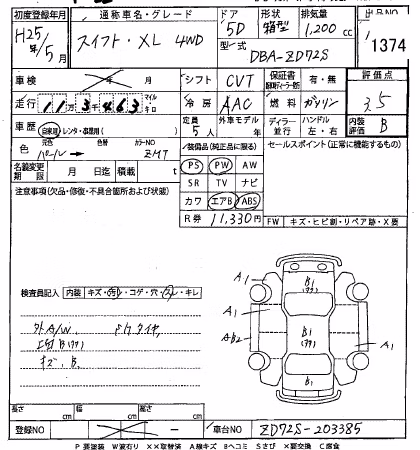 初度登録年月 通称車名・グレード ドア 形状 排気量 出品NO
H25年/5月 スイフト・XL 4WD 5D 箱型 1,200cc 1374
型式 DBA-ZD72S
車検 年 月 シフト CVT 保証書 有・無 評価点
走行 11万3千463 マイル キロ 冷房 AAC 燃料 ガソリン 3.5
車歴 自家用・レンタ・事業用( ) 定員 5人 外車モデル 年 ディーラー・並行 ハンドル 左・右 内装評価 B
色 元色 パール→ 色替 カラーNO ZMT 装備品(純正品に限る) セールスポイント(正常に機能するもの)
名義変更期限 月 日迄 積載 t PS PW AW
注意事項(欠品・修復・不具合箇所および状態) SR TV ナビ
カワ エアB ABS
R券 11,330円 FW キズ・ヒビ割・リペア跡・X要
A1 B1
A1 B1
AB2 A1
B1
検査員記入 内装 キズ・汚れ・コゲ・穴・スレ・キレ
外A/W
キズ、B、
長さ cm 幅 cm 高さ cm
登録NO 車台NO ZD72S-203385
P 要塗装 W波有り ××取替済 A線キズ Bヘコミ Sさび ×要交換 C腐食